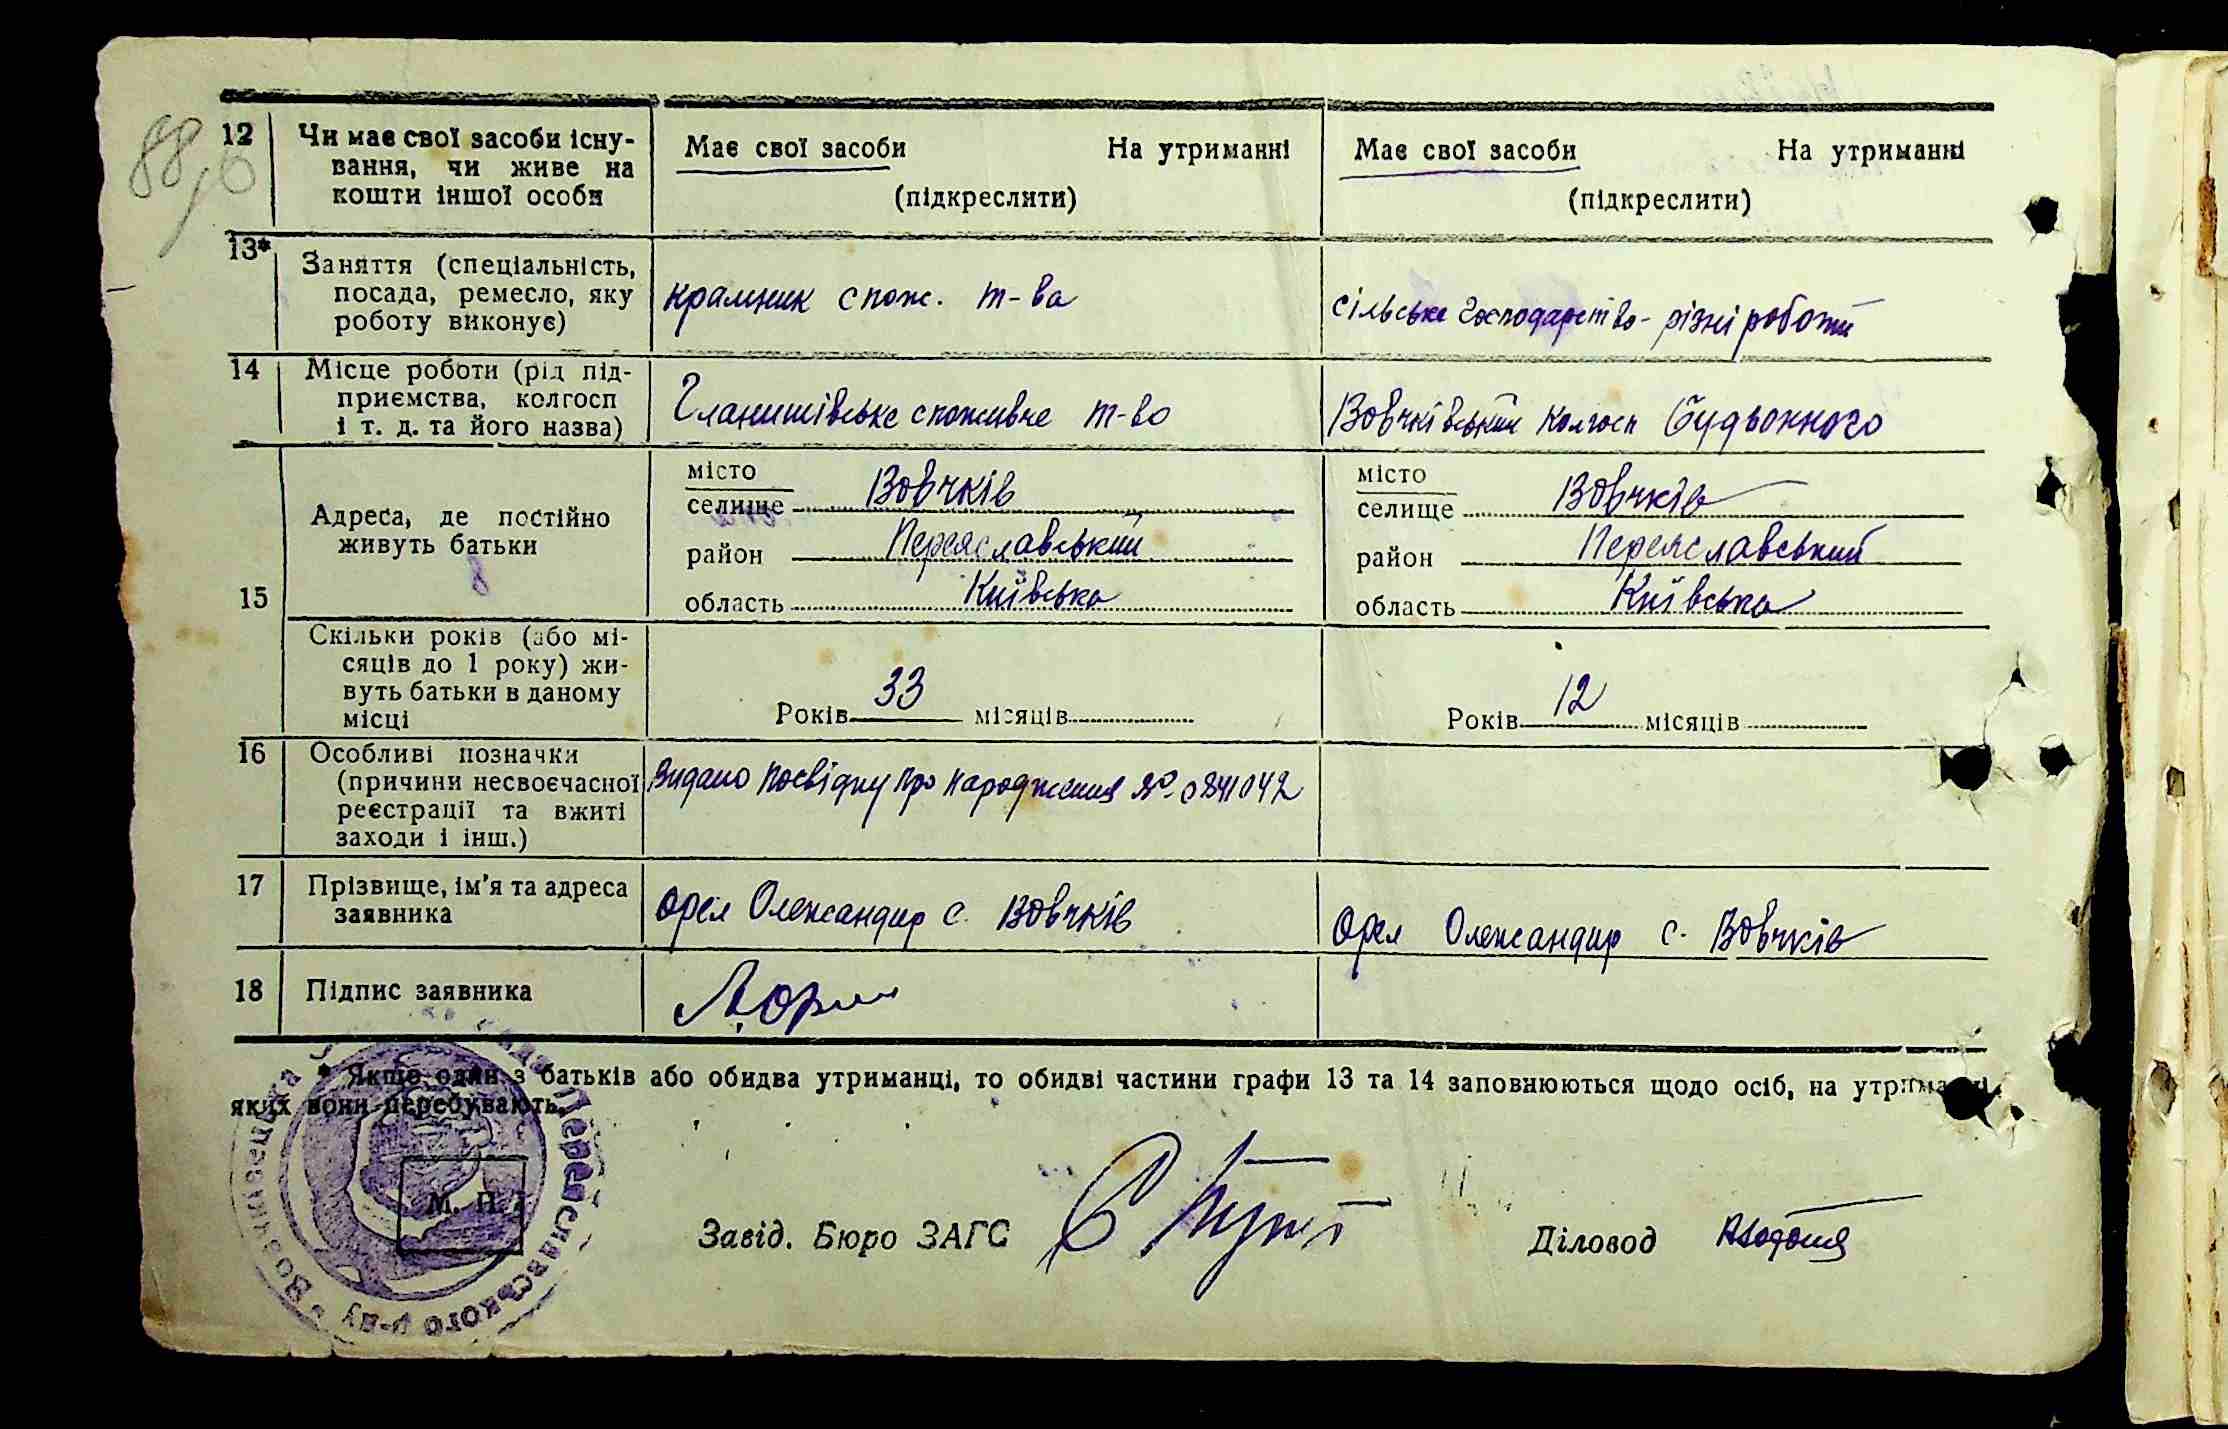 88
12 Чи має свої засоби існу-
вання, чи живе на
кошти іншої особи
Має свої засоби На утриманні
(підкреслити)
Має свої засоби На утриманні
(підкреслити)
13* Заняття (спеціальність,
посада, ремесло, яку
роботу виконує)
крамник спож. т-ва
сільське господарство - різні роботи
14 Місце роботи (рід під-
приємства, колгосп
і т. д. та його назва)
Гланишівське споживче т-во
Вовчківський колгосп Будьонного
15 Адреса, де постійно
живуть батьки
місто
селище Вовчків
район Переяславський
область Київська
місто
селище Вовчків
район Переяславський
область Київська
Скільки років (або мі-
сяців до 1 року) жи-
вуть батьки в даному
місці
Років 33 місяців
Років 12 місяців
16 Особливі позначки
(причини несвоєчасної
реєстрації та вжиті
заходи і інш.)
Видано посвідку про народження № 0841042
17 Прізвище, ім'я та адреса
заявника
Орел Олександир с. Вовчків
Орел Олександир с. Вовчків
18 Підпис заявника
* Якщо один з батьків або обидва утриманці, то обидві частини графи 13 та 14 заповнюються щодо осіб, на утриманні
яких вони перебувають.
М. П.
Переяславського р-ну
Завід. Бюро ЗАГС
Діловод